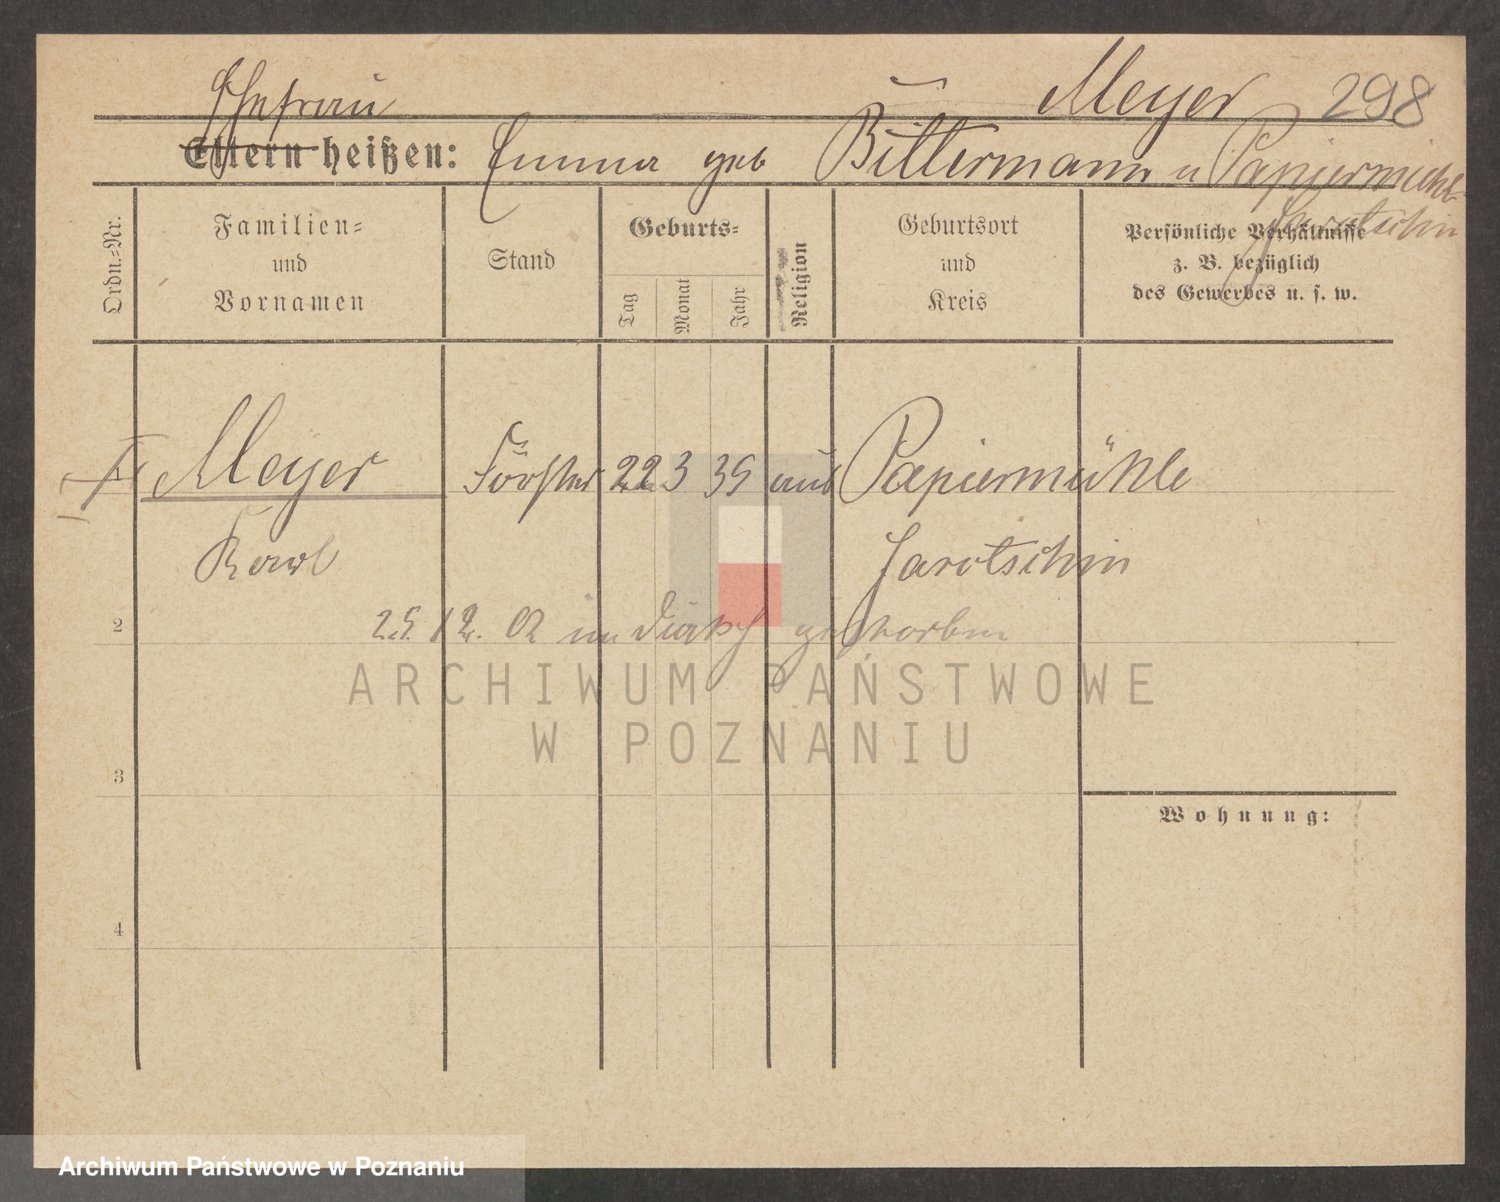 Meyer 298
Ehefrau
Eltern heißen: Emma geb Bittermann u Papiermühle
Jarotschin
Ordn.-Nr.
Familien-
und
Vornamen
Stand
Geburts-
Tag
Monat
Jahr
Religion
Geburtsort
und
Kreis
Persönliche Verhältnisse
z. B. bezüglich
des Gewerbes u. s. w.
Meyer Förster 22 3 35 aus Papiermühle
Karl Jarotschin
2 25. 12. 02 im gestorben
ARCHIWUM PAŃSTWOWE
W POZNANIU
3
Wohnung:
4
Archiwum Państwowe w Poznaniu